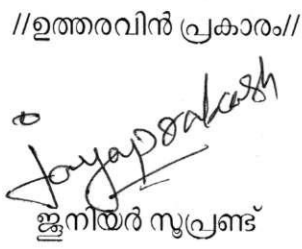 //ഉത്തരവിൻ പ്രകാരം//
jayaprakash
ജൂനിയർ സൂപ്രണ്ട്